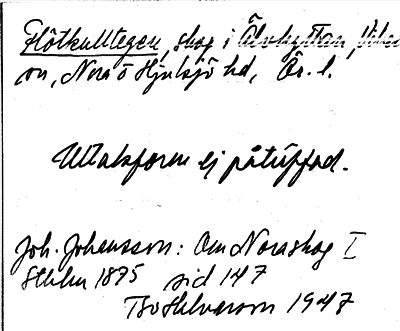 Flötkulltegen, skog i Älvhyttan, Viker
sn, Nora o Hjulsjö hd, Ör. l.
Uttalsform ej påträffad.
Joh. Johansson: Om Noraskog I
Sthlm 1875 sid 147
1947